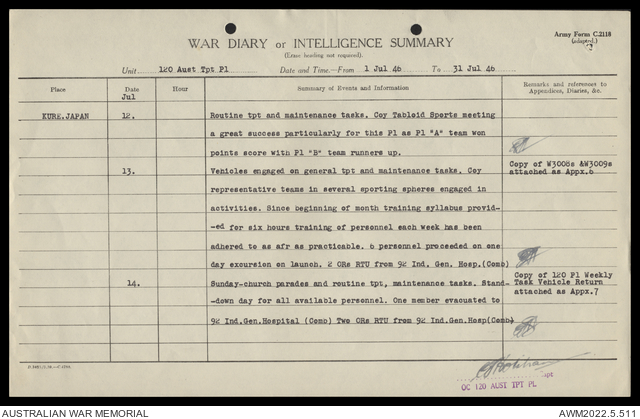 Army Form C.2118
(adapted.)
WAR DIARY or INTELLIGENCE SUMMARY
(Erase heading not required).
Unit 120 Aust Tpt Pl Date and Time—From 1 Jul 46 To 31 Jul 46
Place Date Hour Summary of Events and Information Remarks and references to Appendices, Diaries, &c.
Jul
KURE.JAPAN 12. Routine tpt and maintenance tasks. Coy Tabloid Sports meeting
a great success particularly for this Pl as Pl "A" team won
points score with Pl "B" team runners up.
13. Vehicles engaged on general tpt and maintenance tasks. Coy
Copy of W3008s &W3009s
attached as Appx.6
representative teams in several sporting spheres engaged in
activities. Since beginning of month training syllabus provid-
-ed for six hours training of personnel each week has been
adhered to as afr as practicable. 6 personnel proceeded on one
day excursion on launch. 2 ORs RTU from 92 Ind. Gen. Hosp.(Comb)
14. Sunday-church parades and routine tpt, maintenance tasks. Stand-
Copy of 120 Pl Weekly
Task Vehicle Return
attached as Appx.7
-down day for all available personnel. One member evacuated to
92 Ind.Gen.Hospital (Comb) Two ORs RTU from 92 Ind.Gen.Hosp(Comb)
Capt
OC 120 AUST TPT PL
AUSTRALIAN WAR MEMORIAL
AWM2022.5.511